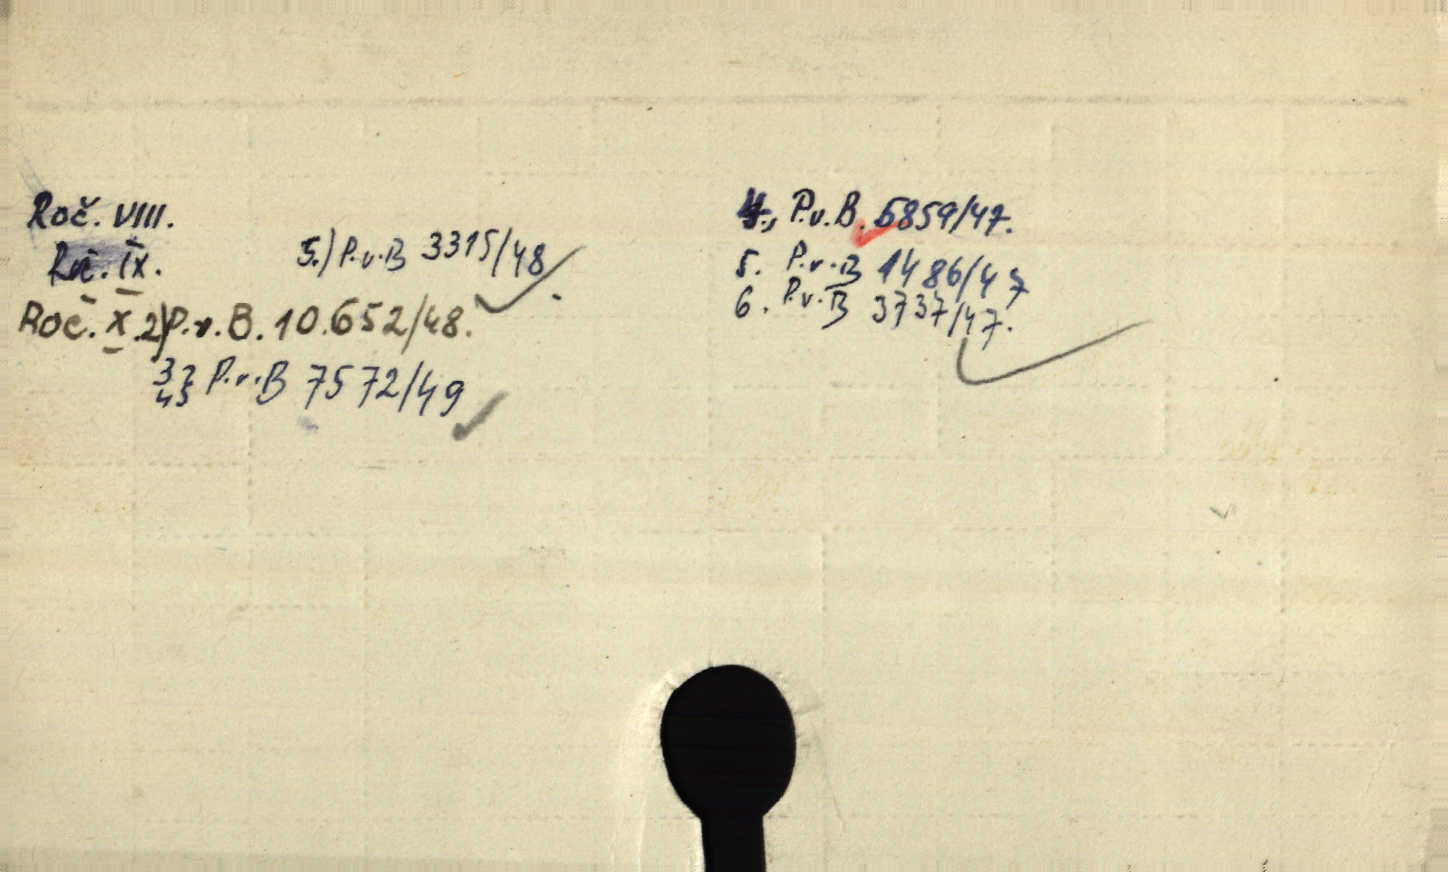 Roč. VIII.
4., P.v.B. 5859/47.
Roč. IX.
5.) P.v.B 3315/48
5. P.v.B 1486/47
6. P.v.B 3737/47.
Roč. X. 2) P.v.B. 10.652/48.
P.v.B 7572/49